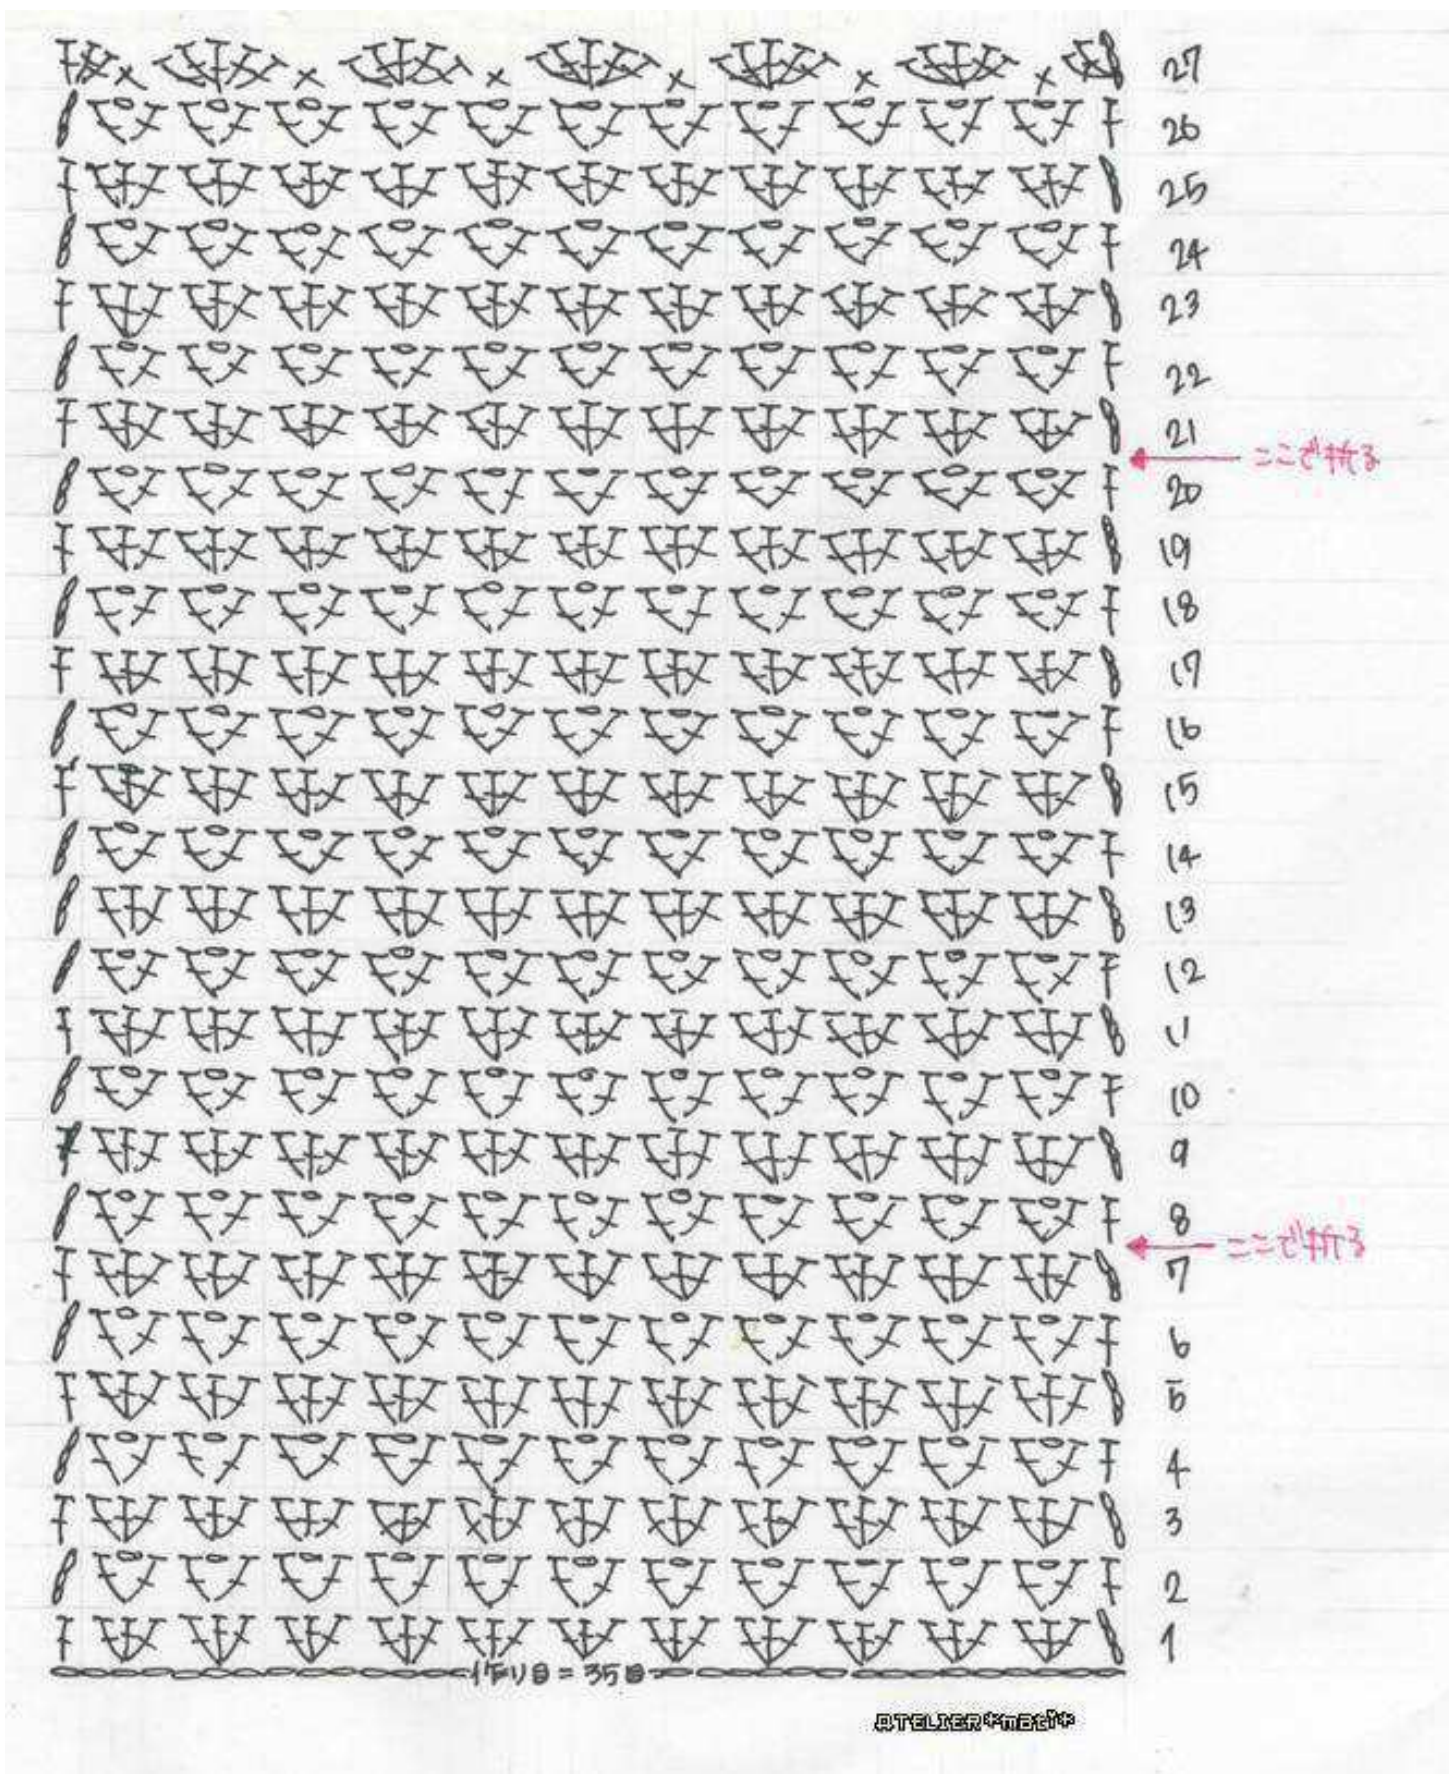 27
26
25
24
23
22
21
ここで折る
20
19
18
17
16
15
14
13
12
11
10
9
8
ここで折る
7
6
5
4
3
2
1
作り目=35目
ATELIER*mati*